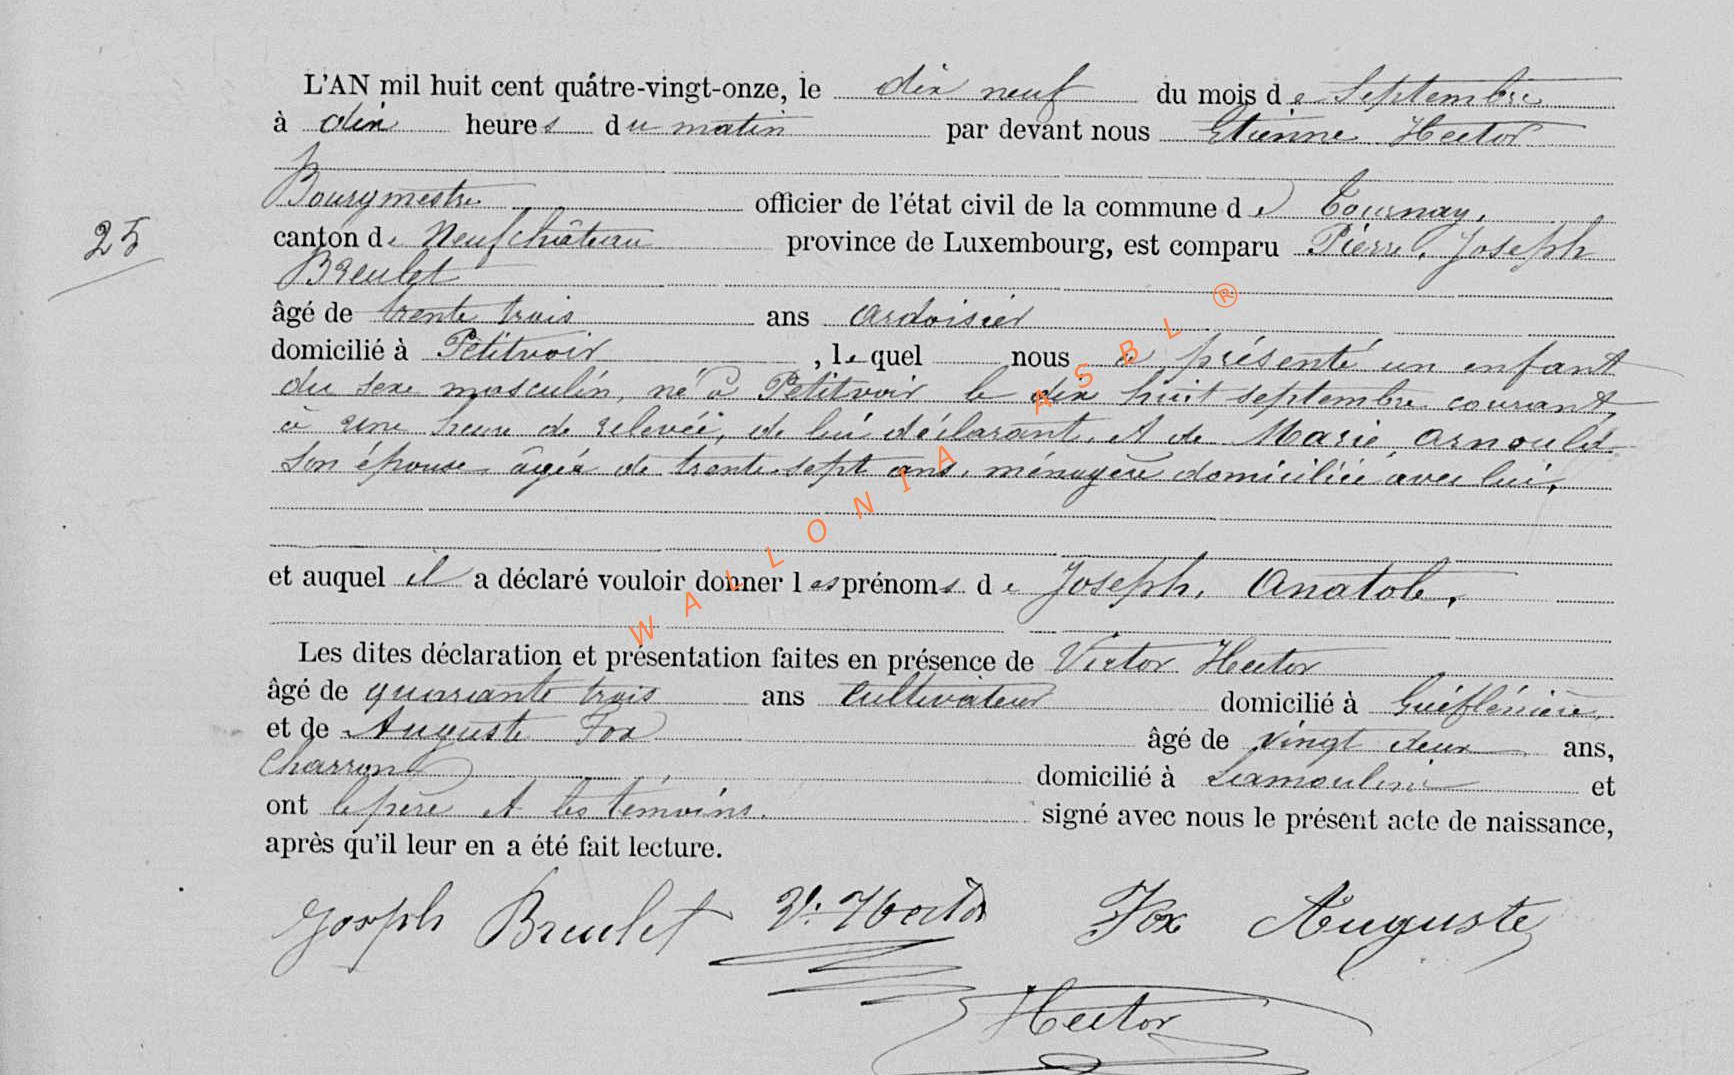 L'AN mil huit cent quátre-vingt-onze, le dix neuf du mois de Septembre
à dix heures du matin par devant nous Etienne Hector
Bourgmestre officier de l'état civil de la commune de Tournay,
25
canton de Neufchâteau province de Luxembourg, est comparu Pierre, Joseph
Breulet
âgé de trente trois ans ardoisier
domicilié à Petitvoir, lequel nous a présenté un enfant
du sexe masculin, né à Petitvoir le dix huit septembre courant,
à une heure de relevée, de lui déclarant, et de Marie Arnould
son épouse âgée de trente-sept ans, ménagère domiciliée avec lui,
et auquel il a déclaré vouloir donner les prénoms de Joseph, Anatole,
Les dites déclaration et présentation faites en présence de Victor Hector
âgé de quarante trois ans cultivateur domicilié à
et de Auguste Fox âgé de vingt deux ans,
Charron domicilié à et
ont le père et les témoins. signé avec nous le présent acte de naissance,
après qu'il leur en a été fait lecture.
Joseph Breulet V. Hector Fox Auguste
Hector
WALLONIA ASBL ®